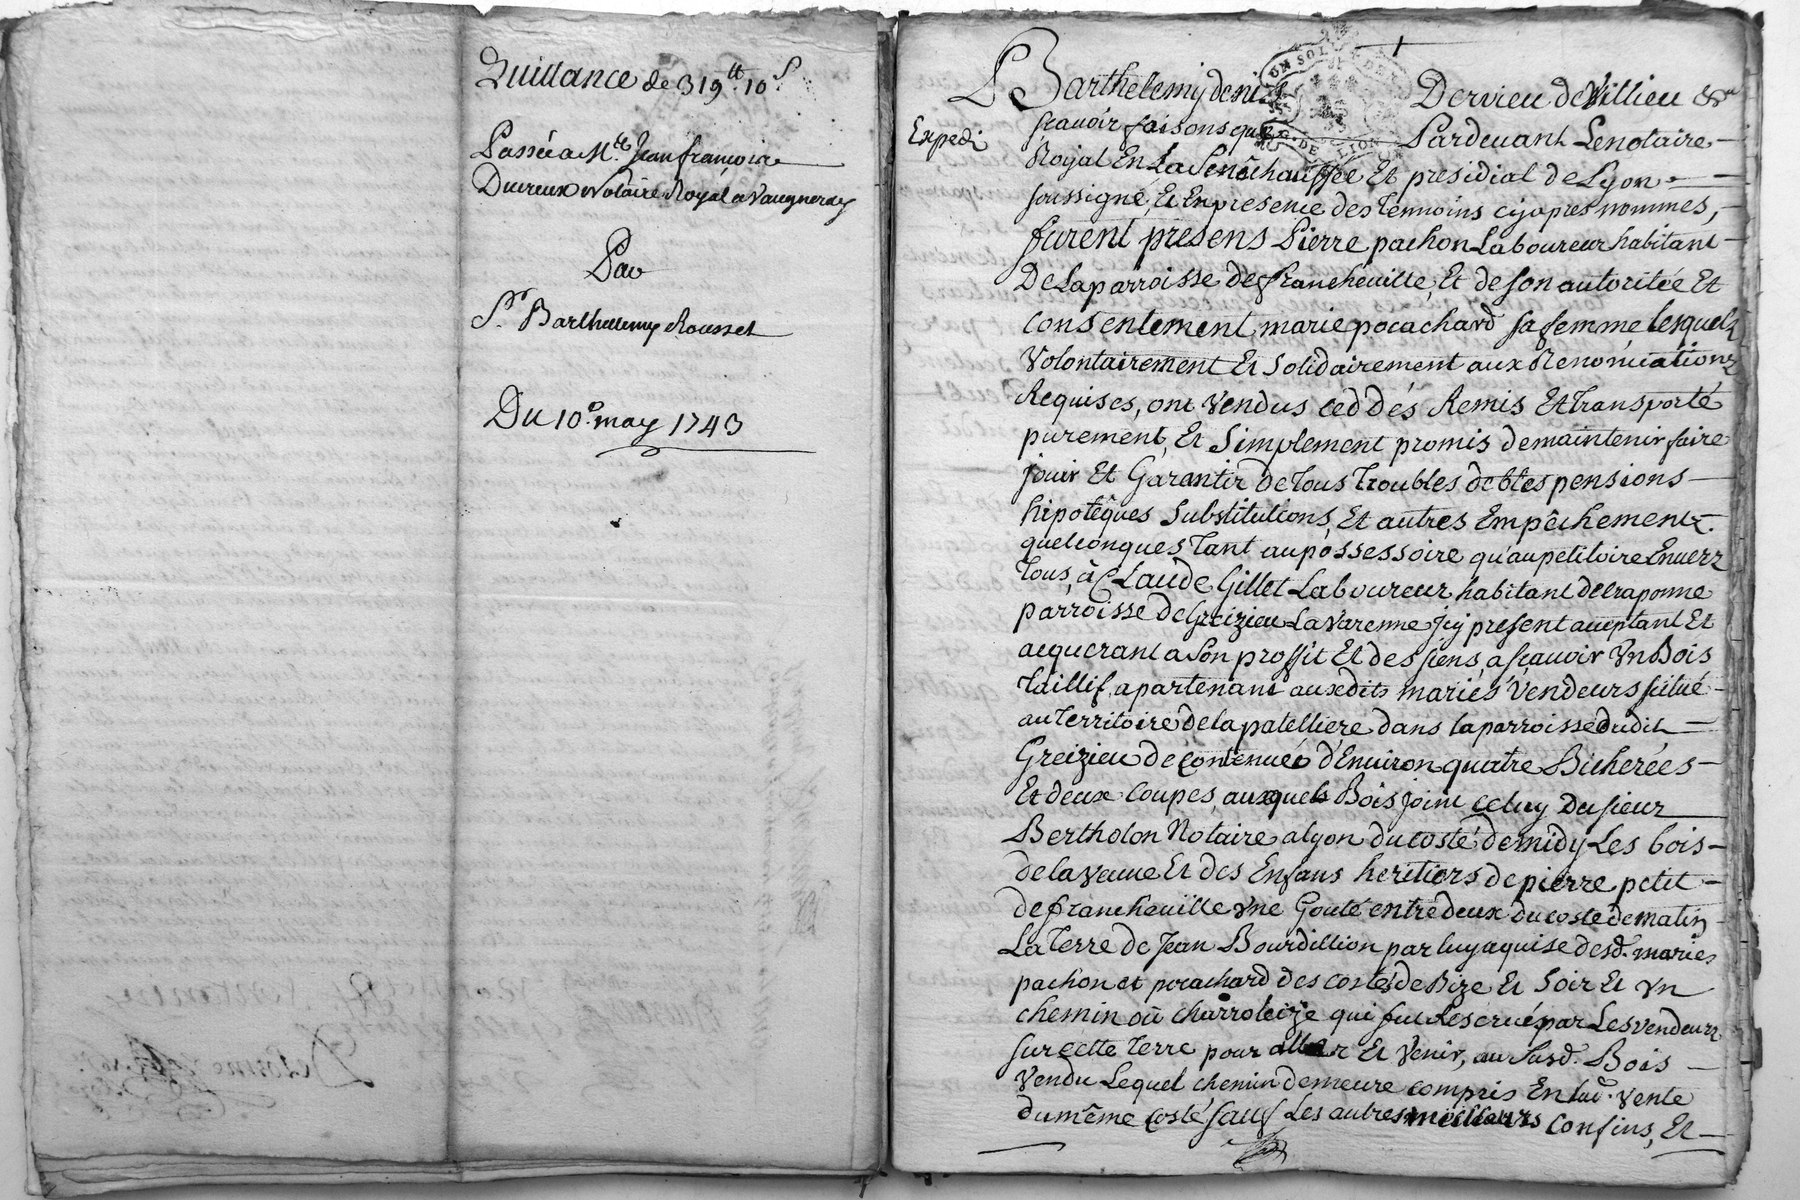 Quittance de 319ᵗᵗ 10ˢ
Passée a Mᵗʳᵉ Jean françois
Ducreux Notaire Royal a Vaugneray
Par
Sʳ Barthellemy Rousset
Du 10ᵉ may 1743
UN SOL
G. DE LION
Barthelemy deni Dervieu de Villieu &ᵃ
Expedié
sçavoir faisons que Pardevant Le notaire
Royal En La Senêchaussée Et presidial de Lyon
soussigné, Et En presence des Temoins cy apres nommes,
furent presens Pierre pachon Laboureur habitant
De La parroisse de francheville, Et de son autoritée Et
consentement marie pocachard sa femme lesquels
Volontairement Et solidairement aux Renonciations
Requises, ont Vendus ceddés Remis Et Transporté
purement, Et Simplement promis de maintenir faire
jouir Et Garantir de Tous Troubles debtes pensions
hipotêques Substitutions, Et autres Empêchements
quelconques Tant au possessoire qu'au petitoire Envers
Tous, à Claude Gillet Laboureur habitant de Craponne
parroisse de Greizieu La Varenne jcy present acceptant Et
acquerant a son proffit Et des siens, a sçavoir Vn Bois
Taillif, apartenant auxdits mariés Vendeurs situé
au Territoire de la patelliere dans la parroisse dudit
Greizieu de contenuë d'Environ quatre Bicherées
Et deux coupes, auxquels Bois joint celuy du sieur
Bertholon Notaire a lyon du costé de midy Les bois
de la Veuve Et des Enfans heritiers de pierre petit
de francheville Vne Gouté entre deux du costé de matin
La Terre de Jean Bourdillion par luy aquise desd. mariés
pachon et pocachard des costés de Bize Et Soir Et Vn
chemin où charroleize qui fut Reservé par Les Vendeurs
sur cette Terre pour aller Et Venir, au susd. Bois
Vendu Lequel chemin demeure compris En lad. Vente
du même costé sauf Les autres meilleurs confins, Et